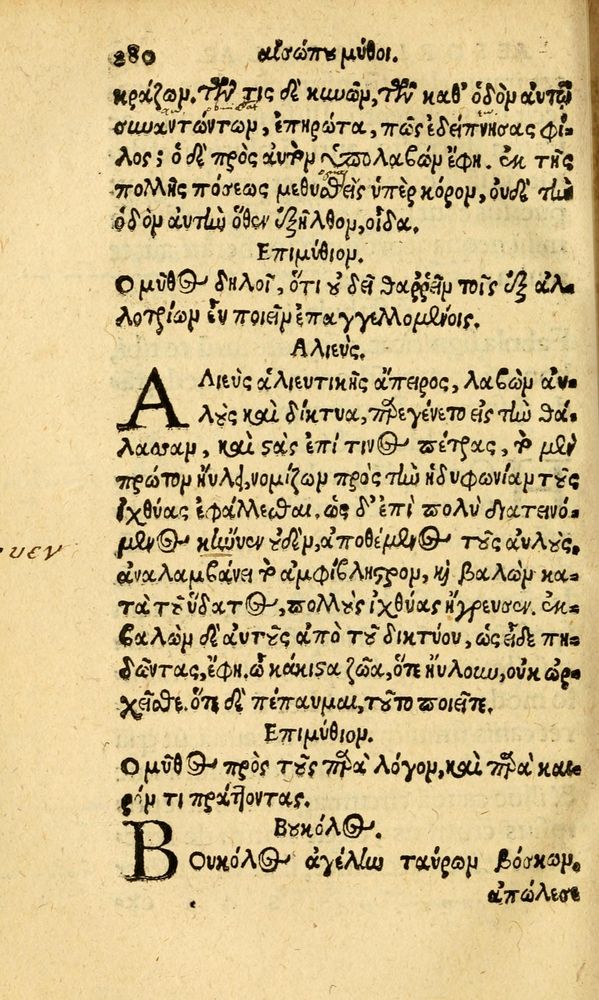 280 αἰσώπου μῦθοι.
κράζων. τῶν τις δὲ κυνῶν, τῶν καθ' ὁδὸν αὐτῷ
συναντώντων, ἐπηρώτα, πῶς ἐδείπνησας φί-
λος; ὁ δὲ πρὸς αὐτὸν ὑπολαβὼν ἔφη. ἐκ τῆς
πολλῆς πόσεως μεθυσθεὶς ὑπὲρ κόρον, οὐδὲ τὴν
ὁδὸν αὐτὴν ὅθεν ἐξῆλθον, οἶδα.
Επιμύθιον.
Ο μῦθος δηλοῖ, ὅτι οὐ δεῖ θαρρεῖν τοῖς ἐξ ἀλ-
λοτρίων εὖ ποιεῖν ἐπαγγελλομένοις.
Αλιεύς.
Αλιεὺς ἁλιευτικῆς ἄπειρος, λαβὼν αὐ-
λοὺς καὶ δίκτυα, παρεγένετο εἰς τὴν θά-
λασσαν, καὶ στὰς ἐπί τινος πέτρας, τὸ μὲν
πρῶτον ηὔλει, νομίζων πρὸς τὴν ἡδυφωνίαν τοὺς
ἰχθύας ἐφάλλεσθαι. ὡς δ' ἐπὶ πολὺ διατεινό-
μενος κίνυεν οὐδὲν, ἀποθέμενος τοὺς αὐλοὺς,
υεν
ἀναλαμβάνει τὸ ἀμφίβληστρον, καὶ βαλὼν κα-
τὰ τοῦ ὕδατος, πολλοὺς ἰχθύας ἤγρευσεν. ἐκ-
βαλὼν δὲ αὐτοὺς ἀπὸ τοῦ δικτύου, ὡς εἶδε πη-
δῶντας, ἔφη. ὦ κάκιστα ζῶα, ὅτε ηὔλουν, οὐκ ὠρ-
χεῖσθε. ὅτε δὲ πέπαυμαι, τοῦτο ποιεῖτε.
Επιμύθιον.
Ο μῦθος πρὸς τοὺς παρὰ λόγον, καὶ παρὰ και-
ρόν τι πράττοντας.
Βουκόλος.
Βουκόλος ἀγέλην ταύρων βόσκων,
ἀπώλεσε